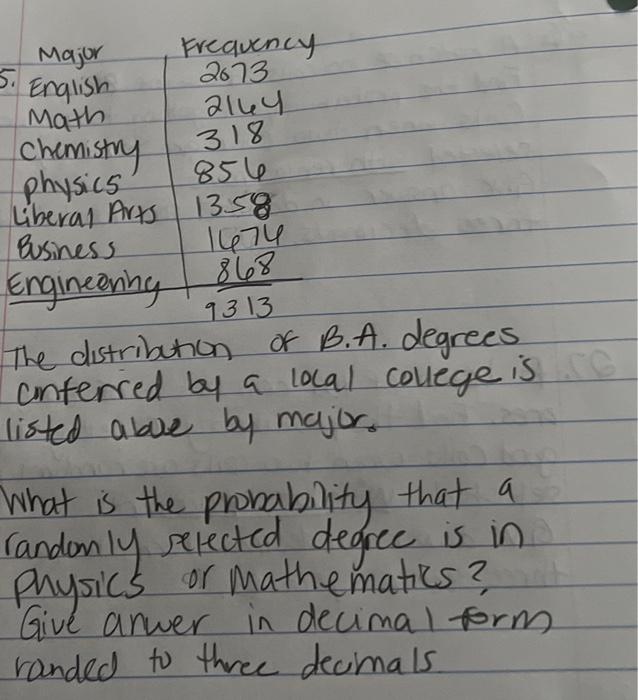 Major Frequency
5. English 2073
Math 2164
Chemistry 318
physics 856
Liberal Arts 1358
Business 1674
Engineering 868
9313
The distribution of B.A. degrees
conferred by a local college is
listed above by major.
What is the probability that a
randomly selected degree is in
physics or Mathematics?
Give anwer in decimal form
randed to three decimals